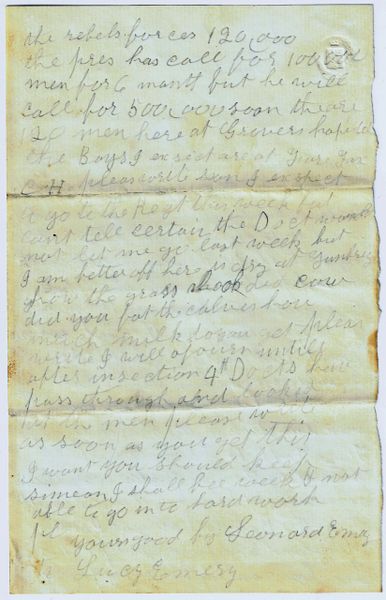 the rebels forces 120,000
the pres has call for 100000
men for 6 month but he will
call for 500,000 soon there
120 men here at Grovers hospital
the Boys I expect are at
C H pleas write soon I expect
to go to the Regt this week but
cant tell certain the Doct would
not let me go last week but
I am better off here is dry at
how the grass shook did cow
did you fat the calves how
much milk do you get pleas
write I will
after insection 4th Docts have
pass through and looked
at the men please write
as soon as you get this
I want you should keep
simeon I shall be week I not
able to go into hard work
yours good by Leonard Emery
Lucy Emery